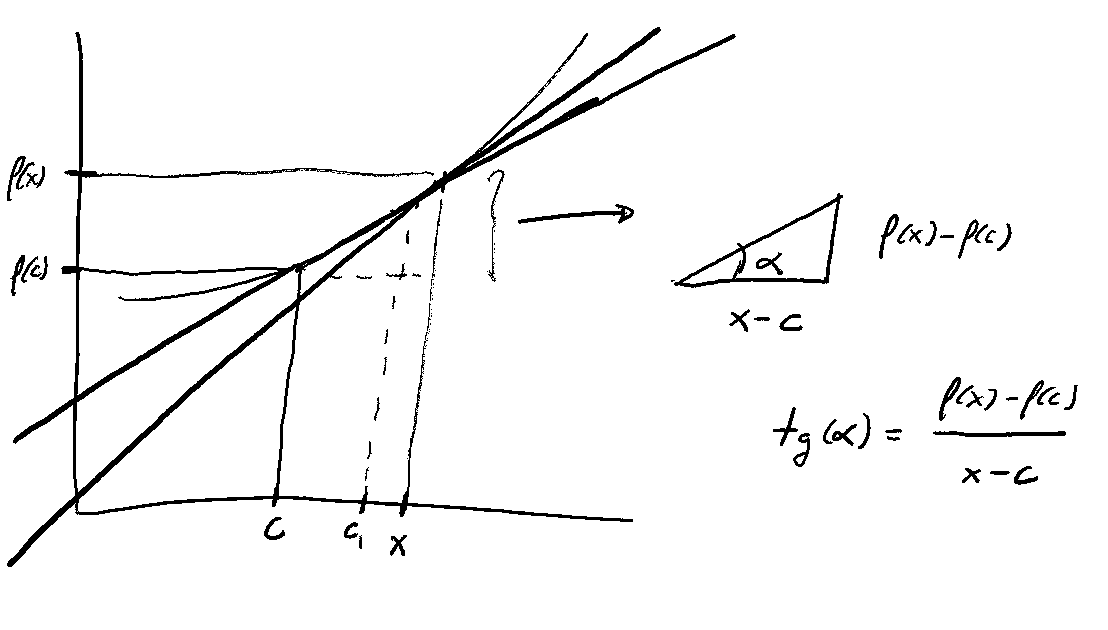 f(x)
f(c)
c
c₁
x
α
f(x)-f(c)
x-c
tg(α) = f(x)-f(c)
x-c